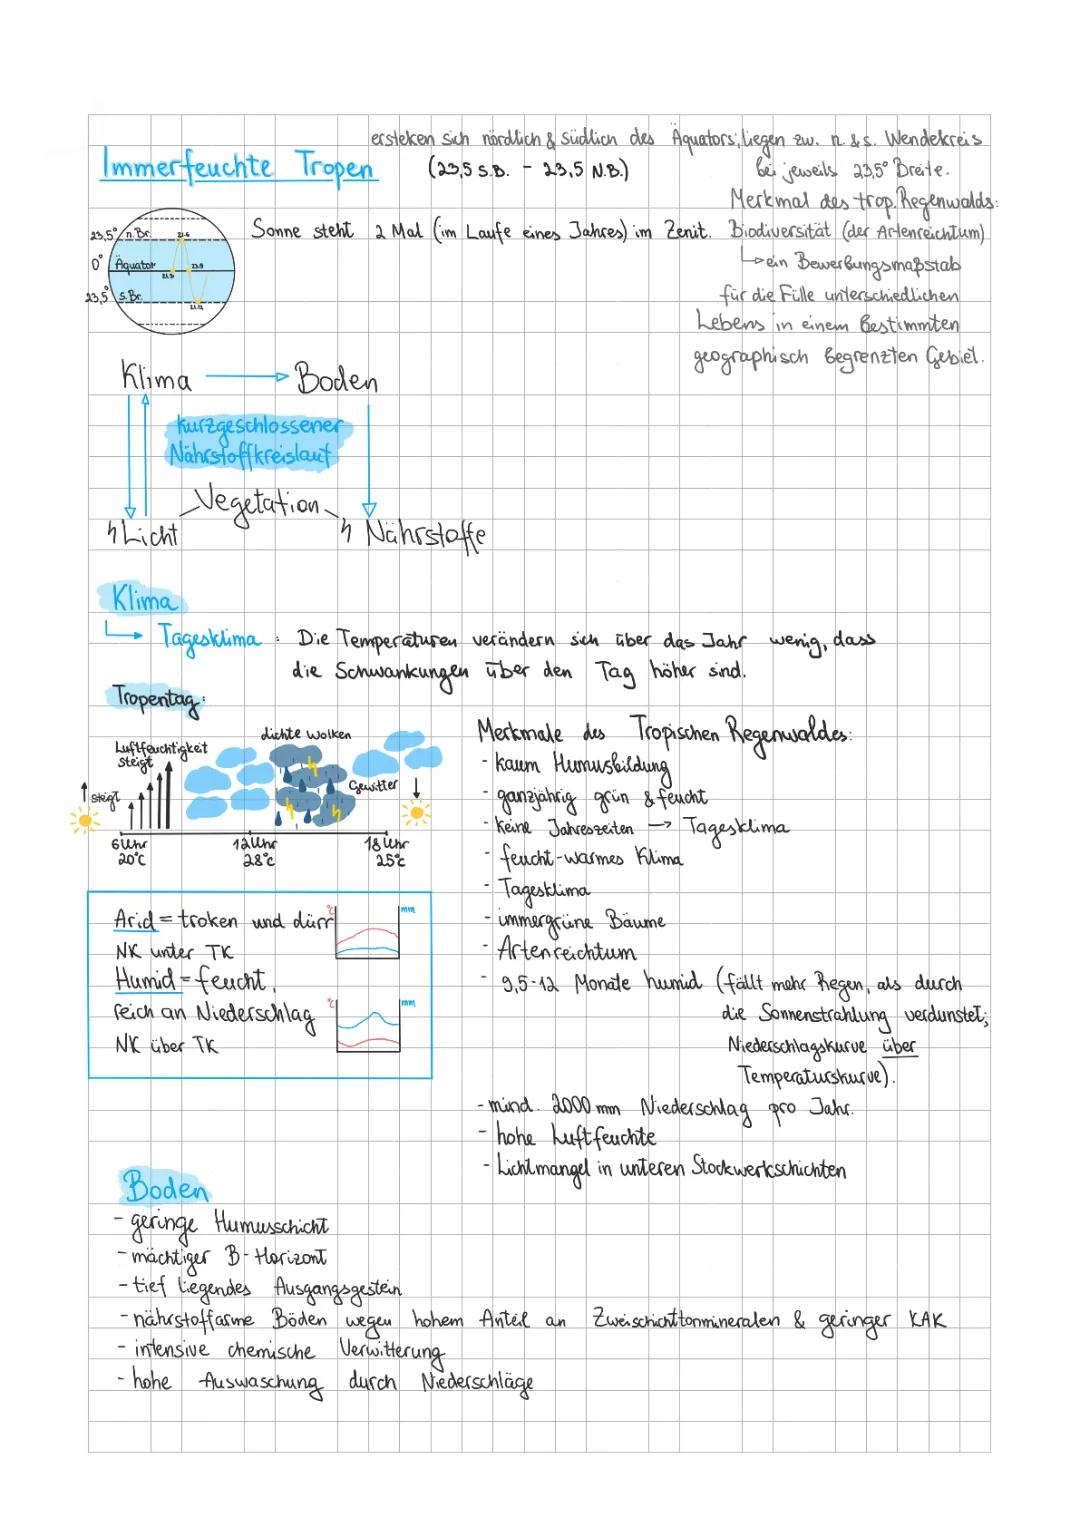 Immerfeuchte Tropen
ersteken sich nördlich & südlich des Äquators; liegen zw. n. & s. Wendekreis
(23,5 S.B. - 23,5 N.B.)
bei jeweils 23,5° Breite.
Merkmal des trop. Regenwalds:
Biodiversität (der Artenreichtum)
↳ ein Bewerbungsmaßstab
für die Fülle unterschiedlichen
Lebens in einem bestimmten
geographisch begrenzten Gebiet.
Sonne steht 2 Mal (im Laufe eines Jahres) im Zenit.
23,5° n. Br.
21.6
0° Äquator
21.3
23.9
23,5° s. Br.
21.12
Klima → Boden
kurzgeschlossener
Nährstoffkreislauf
Vegetation
Licht
Nährstoffe
Klima
↳ Tagesklima: Die Temperaturen verändern sich über das Jahr wenig, dass
die Schwankungen über den Tag höher sind.
Tropentag:
Luftfeuchtigkeit
steigt
dichte Wolken
Gewitter
steigt
6 Uhr
20°C
12 Uhr
28°C
18 Uhr
25°C
Arid = troken und dürr
NK unter TK
Humid = feucht,
reich an Niederschlag
NK über TK
°C
mm
°C
mm
Merkmale des Tropischen Regenwaldes:
- kaum Humusbildung
- ganzjährig grün & feucht
- keine Jahreszeiten → Tagesklima
- feucht-warmes Klima
- Tagesklima
- immergrüne Bäume
- Artenreichtum
- 9,5-12 Monate humid (fällt mehr Regen, als durch
die Sonnenstrahlung verdunstet;
Niederschlagskurve über
Temperaturskurve).
- mind. 2000 mm Niederschlag pro Jahr.
- hohe Luftfeuchte
- Lichtmangel in unteren Stockwerkschichten
Boden
- geringe Humusschicht
- mächtiger B-Horizont
- tief liegendes Ausgangsgestein
- nährstoffarme Böden wegen hohem Anteil an Zweischichttonmineralen & geringer KAK
- intensive chemische Verwitterung
- hohe Auswaschung durch Niederschläge